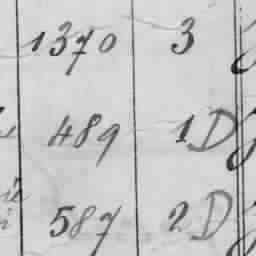 1370 3
489 1D
587 2D